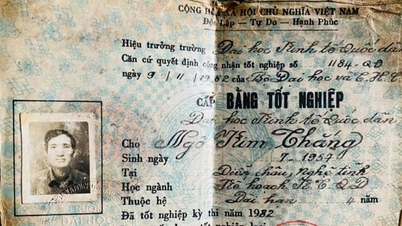 CỘNG HÒA XÃ HỘI CHỦ NGHĨA VIỆT NAM
Độc Lập - Tự Do - Hạnh Phúc
Hiệu trưởng trường Đại học Kinh tế Quốc dân
Căn cứ quyết định công nhận tốt nghiệp số 1184-QĐ
ngày 9/11/1982 của Bộ Đại học và T.H.C.N
CẤP BẰNG TỐT NGHIỆP
Đại học Kinh tế Quốc dân
Cho Ngô Kim Thăng
Sinh ngày 7-1957
Tại Diễn châu, Nghệ tĩnh
Học ngành Kế hoạch K.T.Q.D
Thuộc hệ Dài hạn 4 năm
Đã tốt nghiệp kỳ thi năm 1982